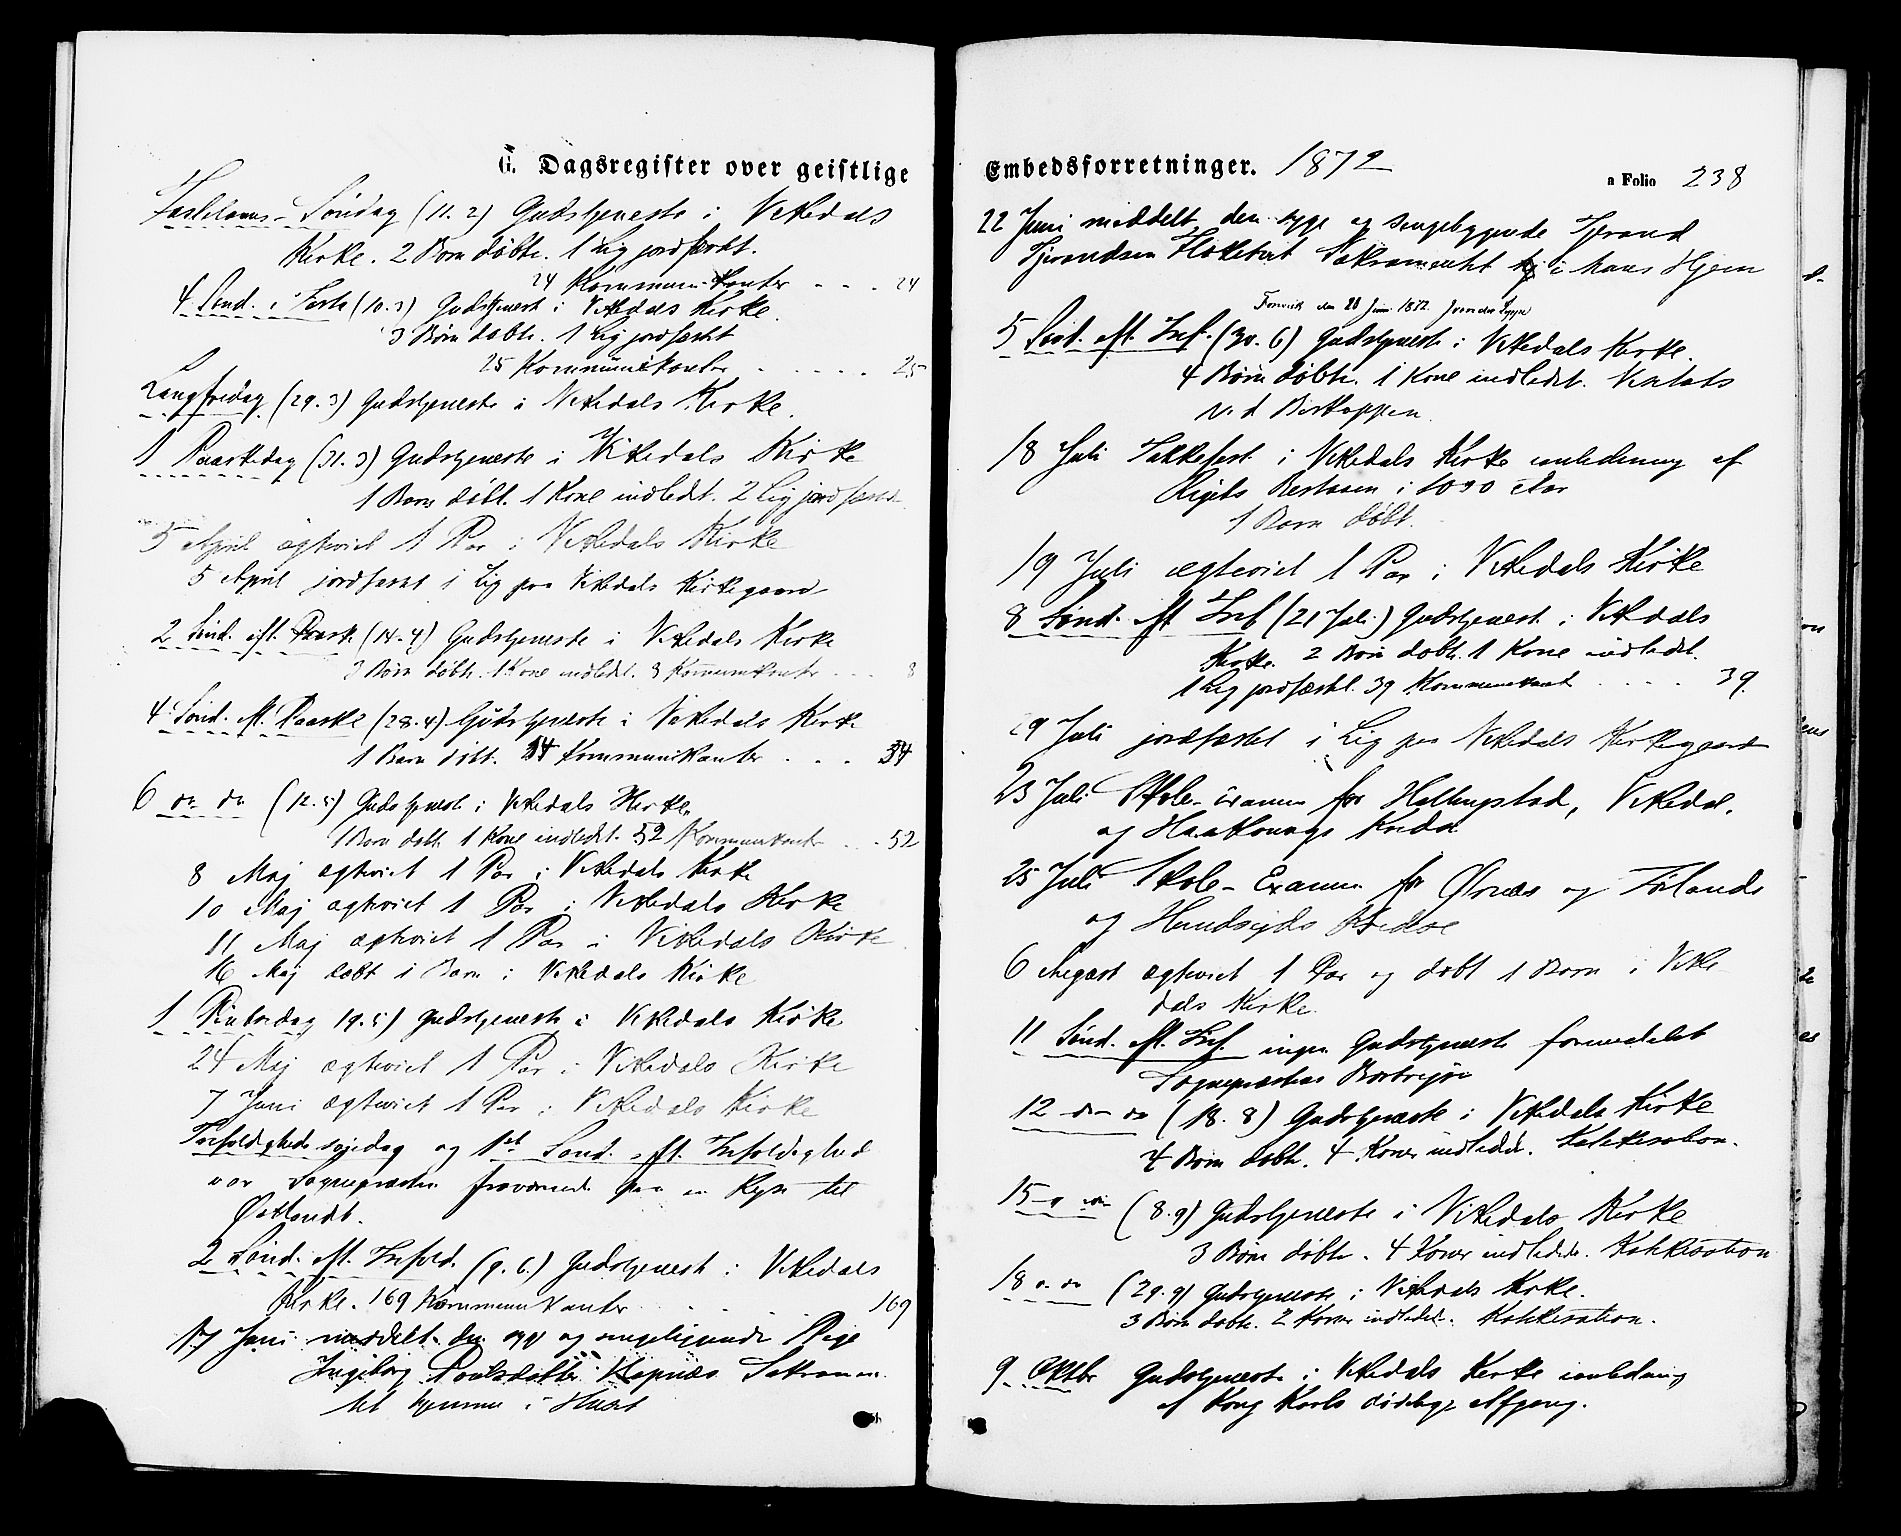 G. Dagsregister over geistlige
Fastelavns-Søndag (11.2) Gudstjeneste i Vikedals
Kirke. 2 Børn døbte. 1 Lig jordfæstet.
24 Kommunikanter . . . 24
4 Sønd. i Faste (10.3) Gudstjeneste i Vikedals Kirke.
3 Børn døbte. 1 Lig jordfæstet
25 Kommunikanter . . . . . 25
Langfredag (29.3) Gudstjeneste i Vikedals Kirke.
1 Paaskedag (31.3) Gudstjeneste i Vikedals Kirke
1 Barn døbt. 1 Kone indledet. 2 Lig jordfæstet
5 April ægteviet 1 Par i Vikedals Kirke
5 April jordfæstet 1 Lig paa Vikedals Kirkegaard
2 Sønd. eft. Paask. (14.4) Gudstjeneste i Vikedals Kirke
3 Børn døbte. 1 Kone indledet. 8 Kommunikanter . . . 8
4 Sønd. eft. Paaske (28.4) Gudstjeneste i Vikedals Kirke
1 Barn døbt. 34 Kommunikanter . . . 34
6 do do (12.5) Gudstjeneste i Vikedals Kirke.
1 Barn døbt 1 Kone indledet. 52 Kommunikanter . . . 52
8 Maj ægteviet 1 Par i Vikedals Kirke
10 Maj ægteviet 1 Par i Vikedals Kirke
11 Maj ægteviet 1 Par i Vikedals Kirke
16 Maj døbt 1 Barn i Vikedals Kirke
1 Pintsedag 19.5) Gudstjeneste i Vikedals Kirke
24 Maj ægteviet 1 Par i Vikedals Kirke
7 Juni ægteviet 1 Par i Vikedals Kirke
og 1ste Sønd. eft. Trefoldighed
var Sognepræsten fraværende paa en Rejse til
Østlandet.
2 Sønd. eft. Trefold. (9.6.) Gudstjeneste i Vikedals
Kirke. 169 Kommunikanter . . . 169
17 Juni meddelt den syge og sengeliggende Pige
Ingeborg Poulsdatter Sakramen
tet hjemme i Huset
Embedsforretninger. 1872
a Folio 238
22 Juni meddelt den syge og sengeliggende Tjerand
Tjerandsen Sakramentet i hans Hjem
den 28 Juni 1872.
5 Sønd. eft. Tref. (30.6) Gudstjeneste i Vikedals Kirke.
4 Børn døbte. 1 Kone indledet. Visitats
ved Biskoppen.
18 Juli Takkefest i Vikedals Kirke i anledning af
Rigets Bestaaen i 1000 Aar
1 Barn døbt.
19 Juli ægteviet 1 Par i Vikedals Kirke
8 Sønd. eft Tref (21 Juli) Gudstjeneste i Vikedals
Kirke. 2 Børn døbte. 1 Kone indledet.
1 Lig jordfæstet. 39 Kommunikant . . . . 39.
29 Juli jordfæstet 1 Lig paa Vikedals Kirkegaard
23 Juli Skole-Examen for Hallingstad, Vikedal.
og Kredse
25 Juli Skole-Examen for Ørnæs og Førlands
og Hundsejds Kredse
6 August ægteviet 1 Par og døbt 1 Barn i Vike
dals Kirke.
11 Sønd. eft. Tref. ingen Gudstjeneste formedelst
Sognepræstens Bortrejse
12 do do (18.8) Gudstjeneste i Vikedals Kirke
4 Børn døbte. 4 Koner indledede. Katekisation.
15 do do (8.9) Gudstjeneste i Vikedals Kirke
3 Børn døbte. 4 Koner indledede. Katekisation
18 do do (29.9) Gudstjeneste i Vikedals Kirke.
3 Børn døbte. 2 Koner indledet. Katekisation.
9 Oktbr Gudstjeneste i Vikedals Kirke i anledning
af Kong Karls dødelige Afgang.